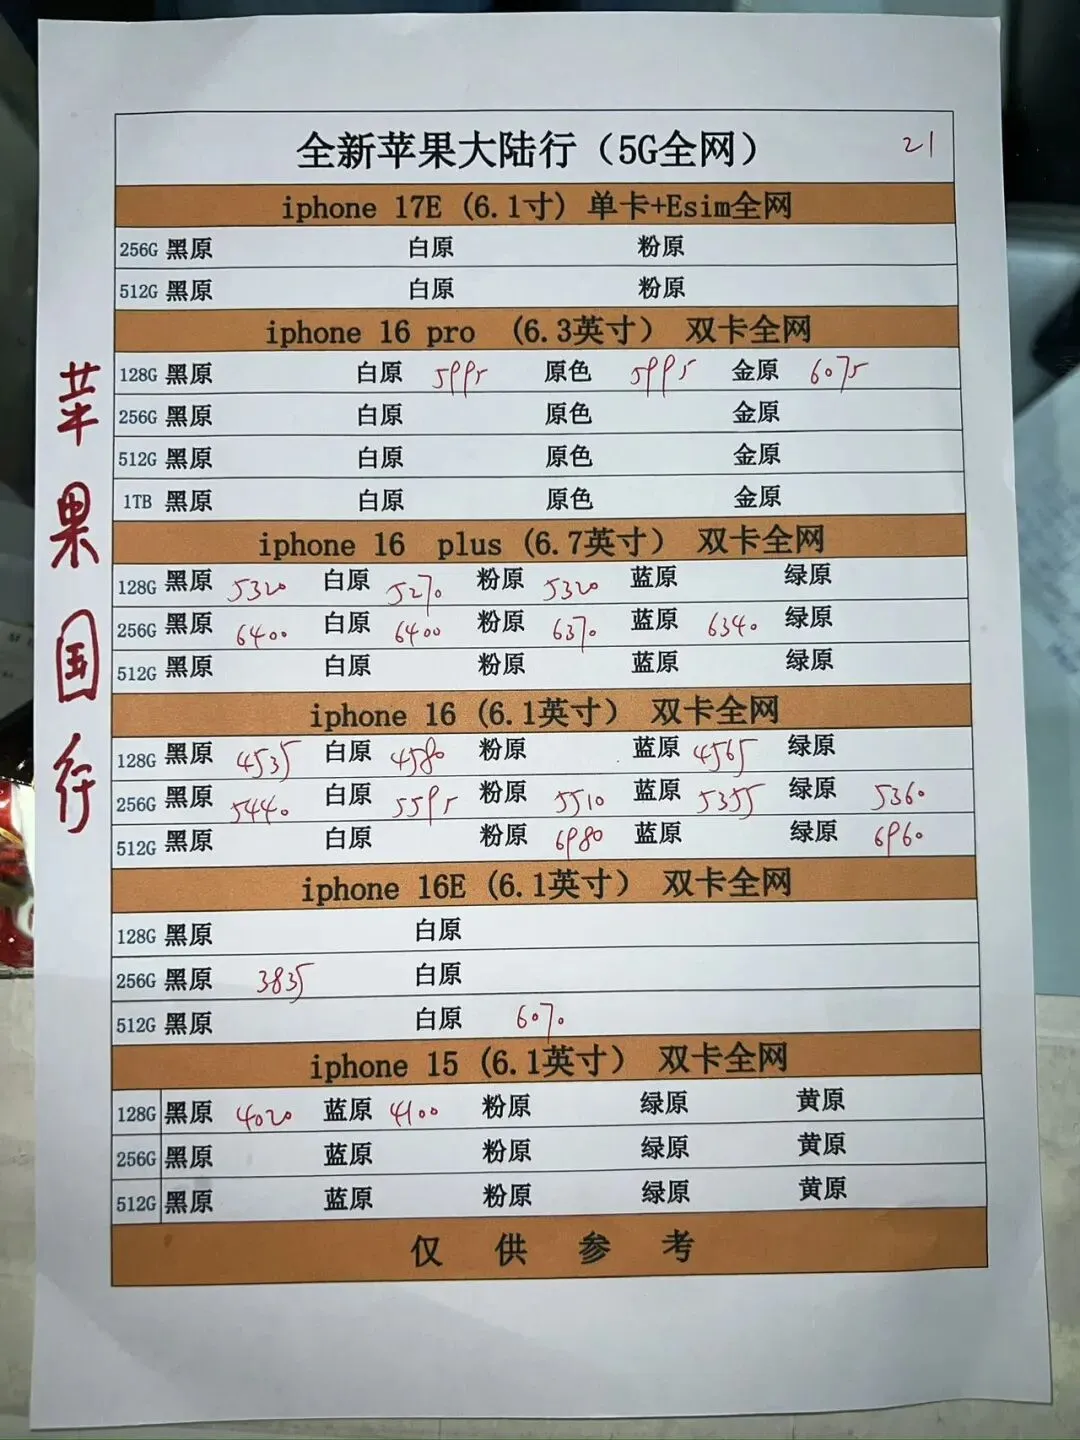 全新苹果大陆行（5G全网） 21
iphone 17E (6.1寸) 单卡+Esim全网
256G 黑原 白原 粉原
512G 黑原 白原 粉原
iphone 16 pro (6.3英寸） 双卡全网
128G 黑原 白原 5995 原色 5995 金原 6075
256G 黑原 白原 原色 金原
512G 黑原 白原 原色 金原
1TB 黑原 白原 原色 金原
iphone 16 plus (6.7英寸） 双卡全网
128G 黑原 5320 白原 5270 粉原 5320 蓝原 绿原
256G 黑原 6400 白原 6400 粉原 6370 蓝原 6340 绿原
512G 黑原 白原 粉原 蓝原 绿原
iphone 16 (6.1英寸） 双卡全网
128G 黑原 4535 白原 4580 粉原 蓝原 4565 绿原
256G 黑原 5440 白原 5595 粉原 5510 蓝原 5355 绿原 5360
512G 黑原 白原 粉原 6980 蓝原 绿原 6960
iphone 16E (6.1英寸） 双卡全网
128G 黑原 白原
256G 黑原 3835 白原
512G 黑原 白原 6070
iphone 15 (6.1英寸） 双卡全网
128G 黑原 4020 蓝原 4100 粉原 绿原 黄原
256G 黑原 蓝原 粉原 绿原 黄原
512G 黑原 蓝原 粉原 绿原 黄原
仅供参考
苹果国行